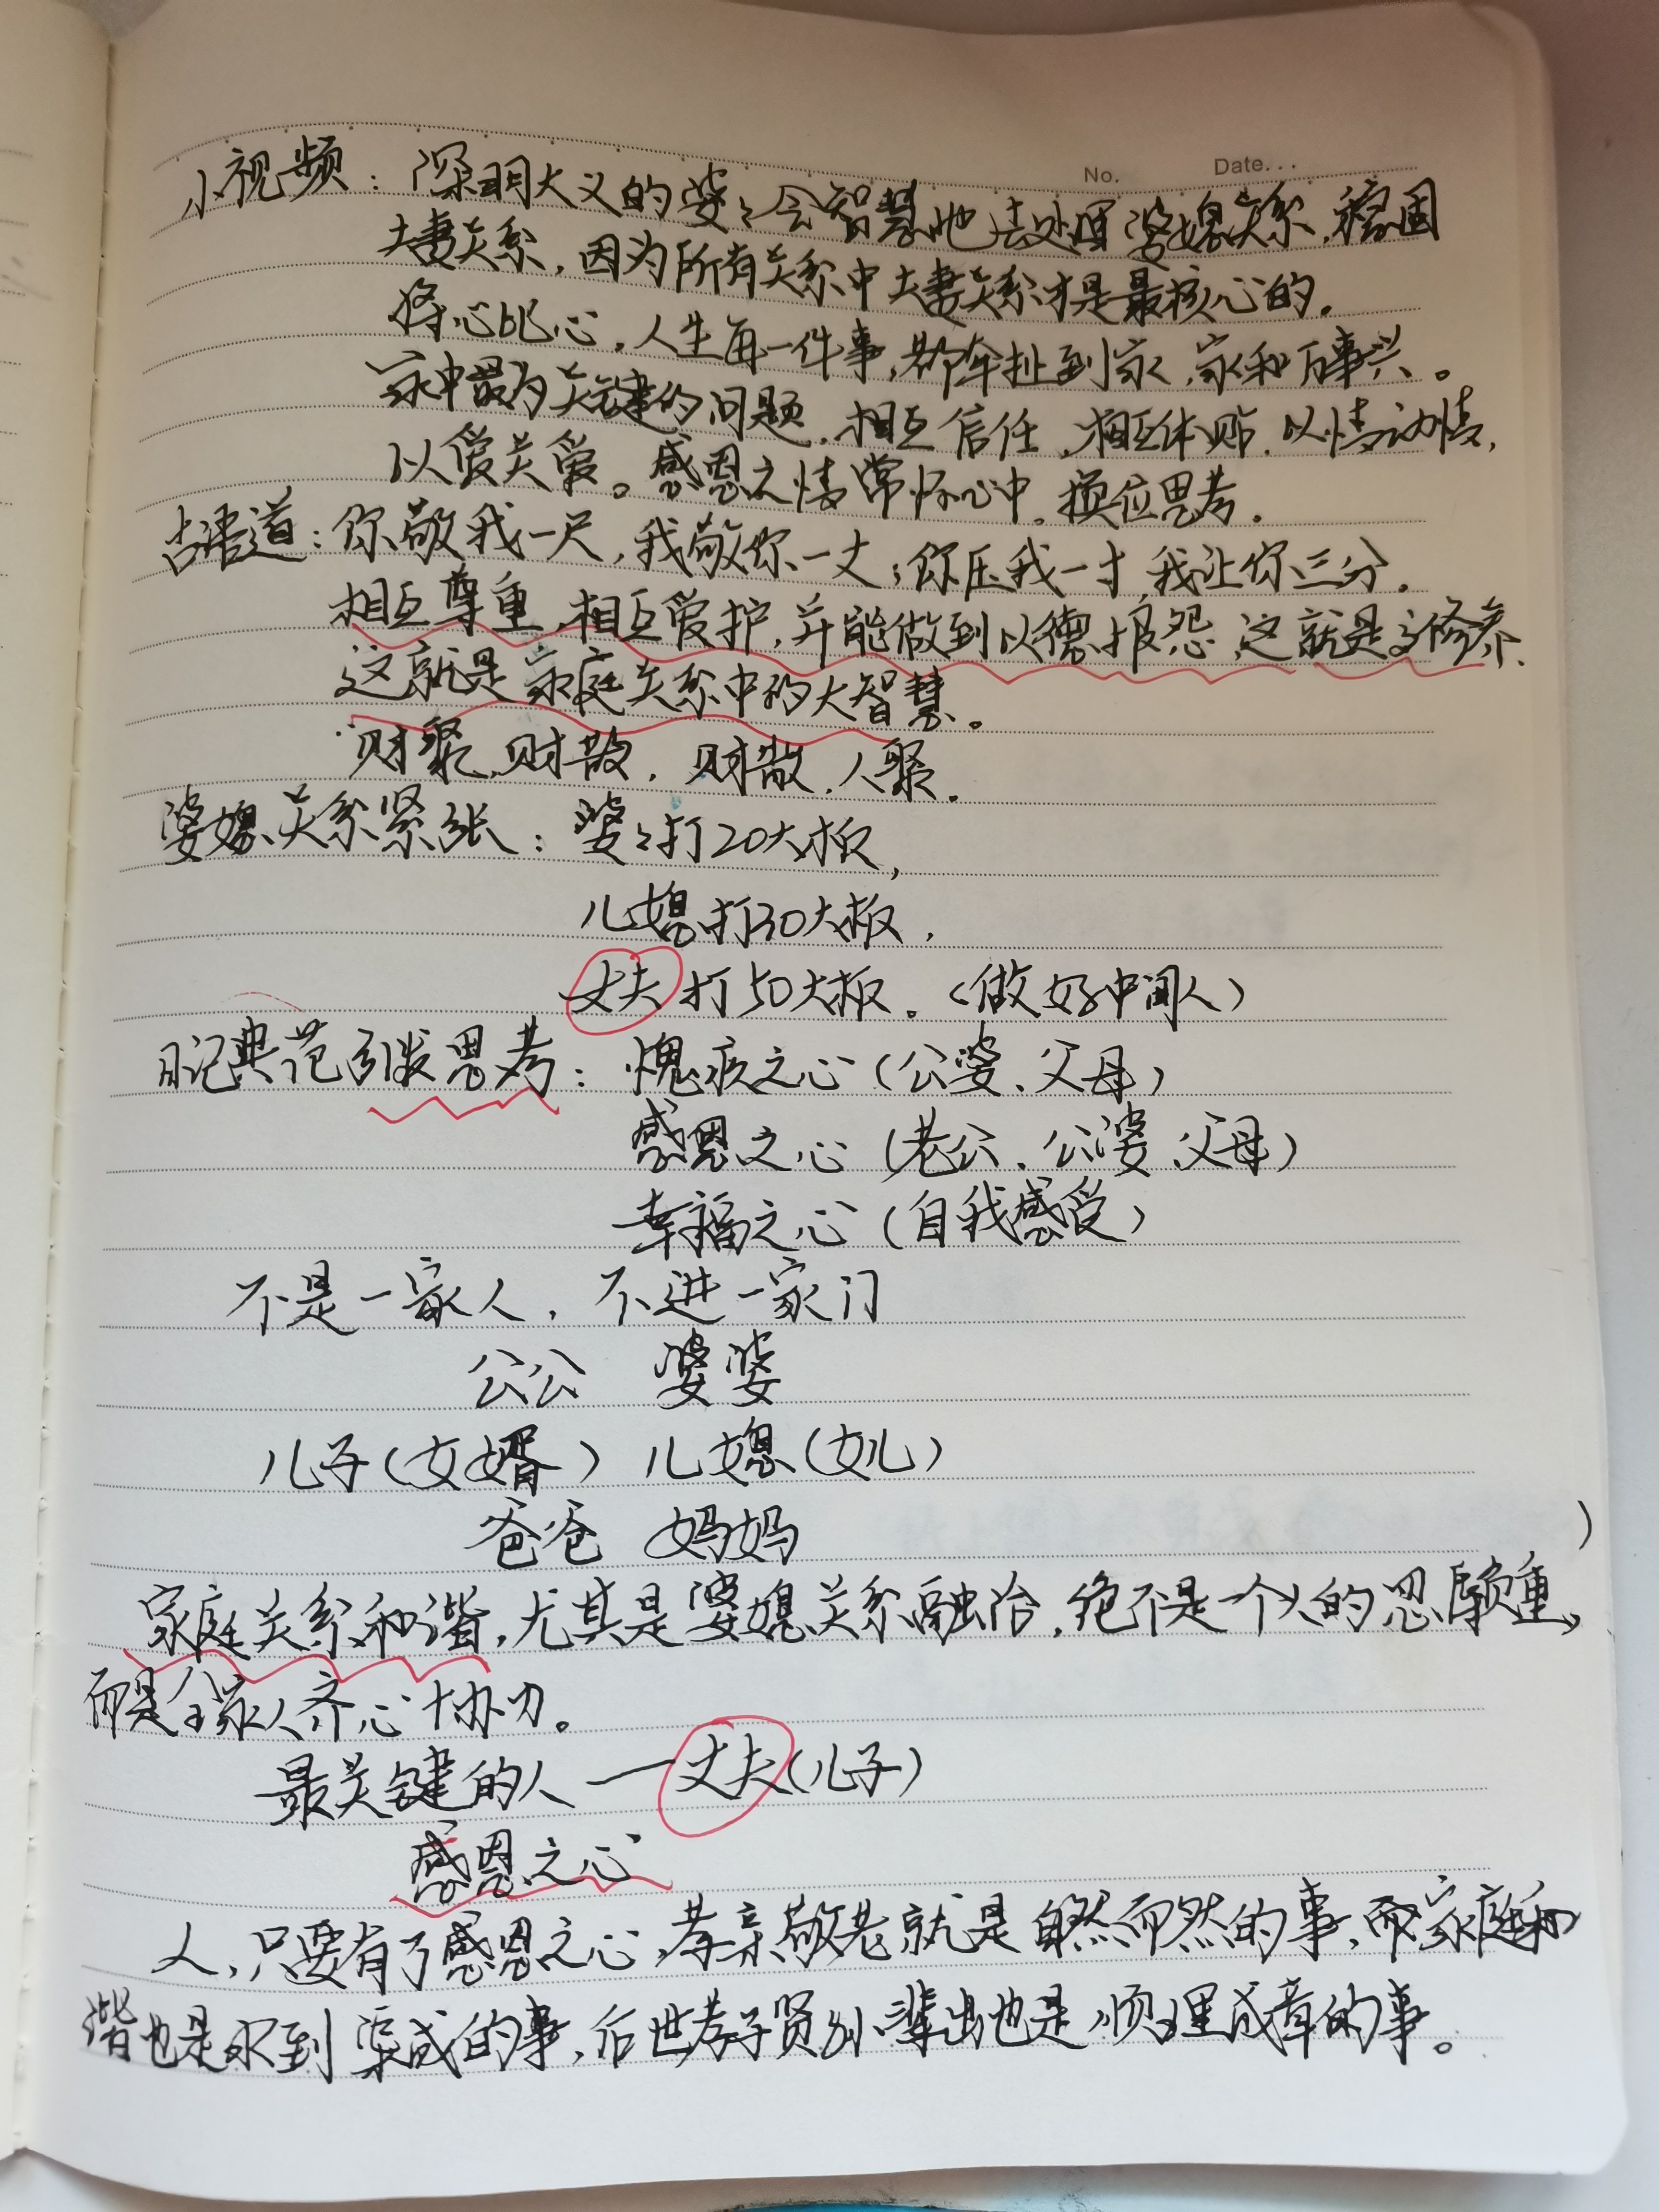 No.    Date...
小视频：深明大义的婆婆会智慧地去处理婆媳关系，稳固
夫妻关系，因为所有关系中夫妻关系才是最核心的。
将心比心，人生每一件事，都牵扯到家，家和万事兴。
家中最为关键的问题，相互信任，相互体贴，以情动情，
以爱关爱。感恩之情常怀心中。换位思考。
古语道：你敬我一尺，我敬你一丈；你压我一寸，我让你三分。
相互尊重，相互爱护，并能做到以德报怨，这就是修养，
这就是家庭关系中的大智慧。
财聚，财散，财散，人聚。
婆媳关系紧张：婆婆打20大板，
儿媳打30大板，
丈夫打50大板。（做好中间人）
日记典范引发思考：愧疚之心（公婆、父母）
感恩之心（老公、公婆、父母）
幸福之心（自我感受）
不是一家人，不进一家门
公公 婆婆
儿子（女婿） 儿媳（女儿）
爸爸 妈妈
家庭关系和谐，尤其是婆媳关系融洽，绝不是一个人的忍辱负重，
而是全家人齐心协力。
最关键的人——丈夫（儿子）
感恩之心
人，只要有了感恩之心，孝亲敬老就是自然而然的事，而家庭和
谐也是水到渠成的事，后世孝子贤孙辈出也是顺理成章的事。